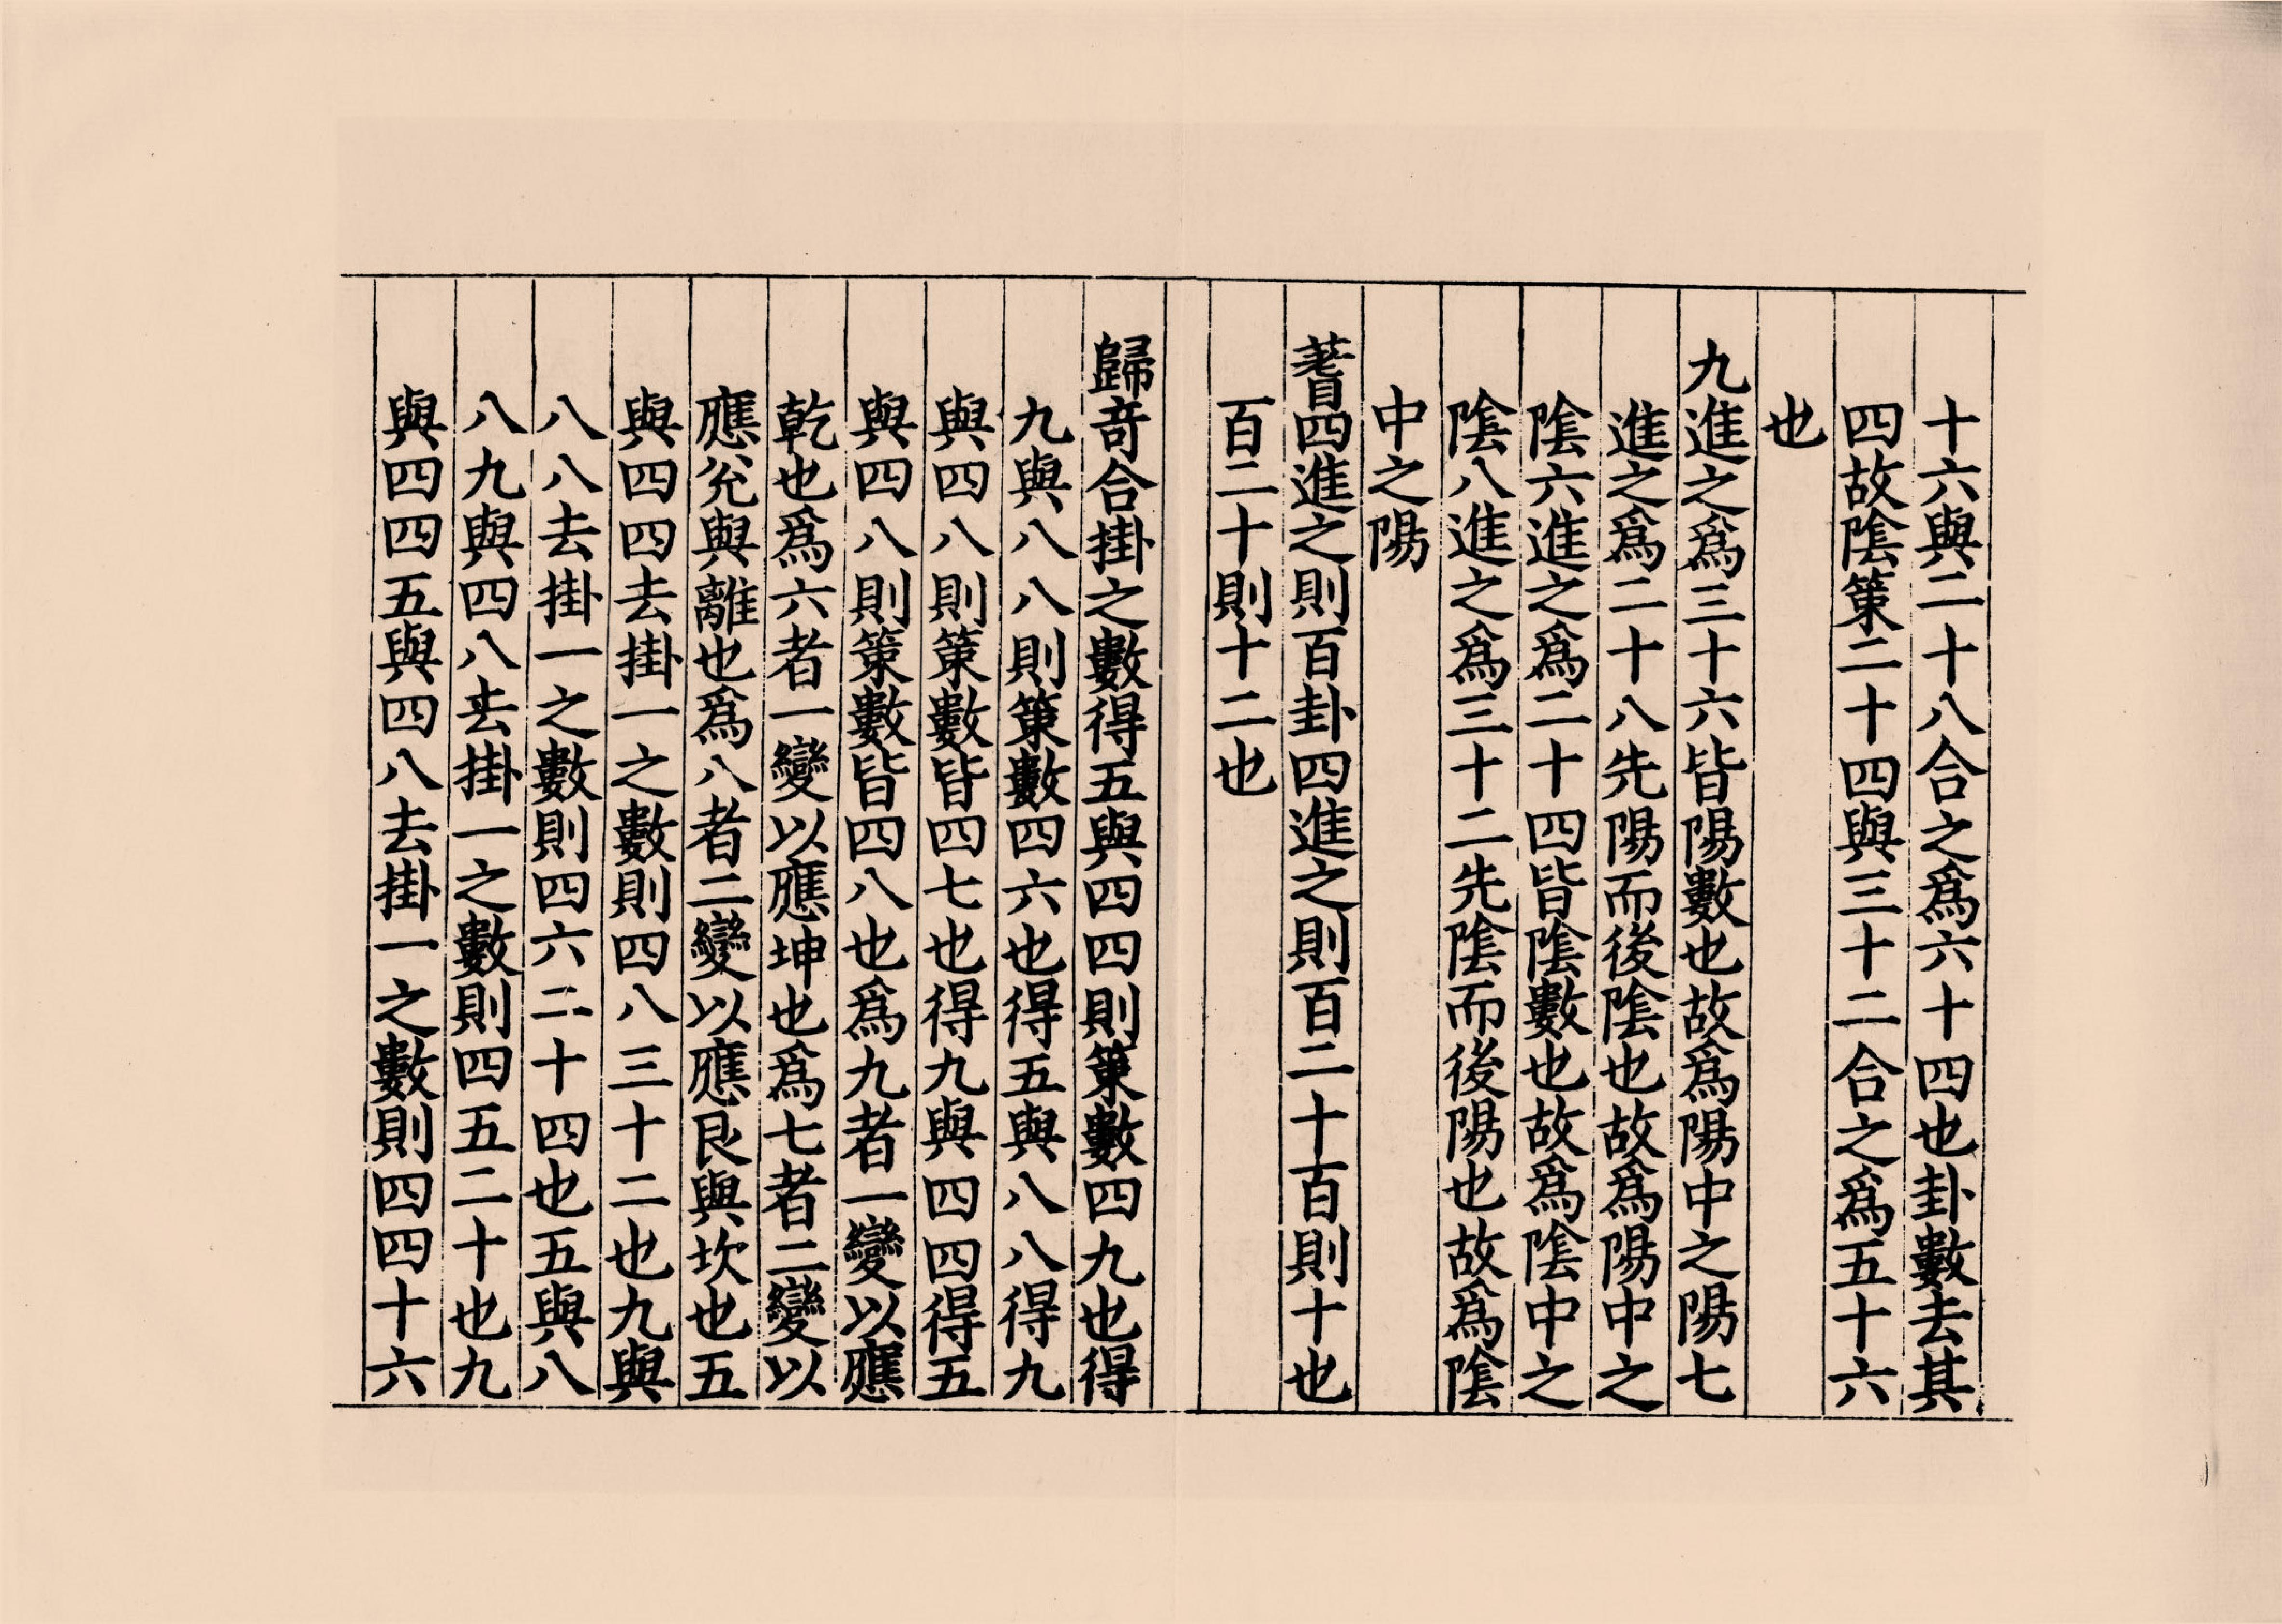 十六與二十八合之爲六十四也卦數去其
四故陰策二十四與三十二合之爲五十六
也
九進之爲三十六皆陽數也故爲陽中之陽七
進之爲二十八先陽而後陰也故爲陽中之
陰六進之爲二十四皆陰數也故爲陰中之
陰八進之爲三十二先陰而後陽也故爲陰
中之陽
蓍四進之則百卦四進之則百二十百則十也
百二十則十二也
歸奇合掛之數得五與四四則策數四九也得
九與八八則策數四六也得五與八八得九
與四八則策數皆四七也得九與四四得五
與四八則策數皆四八也爲九者一變以應
乾也爲六者一變以應坤也爲七者二變以
應兊與離也爲八者二變以應艮與坎也五
與四四去掛一之數則四八三十二也九與
八八去掛一之數則四六二十四也五與八
八九與四八去掛一之數則四五二十也九
與四四五與四八去掛一之數則四四十六